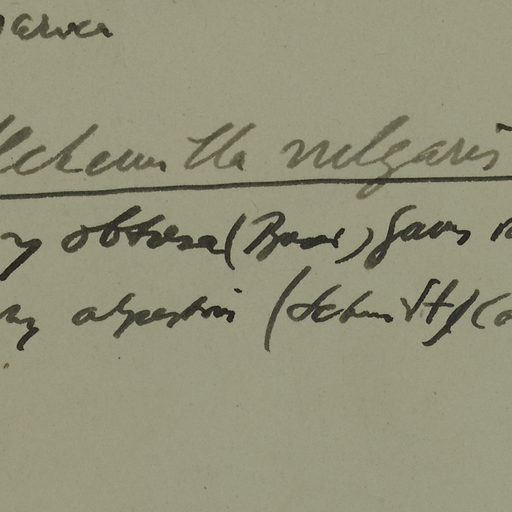 Alchemilla vulgaris
obtusa (Buser) Gams
alpestris (Schmidt) (